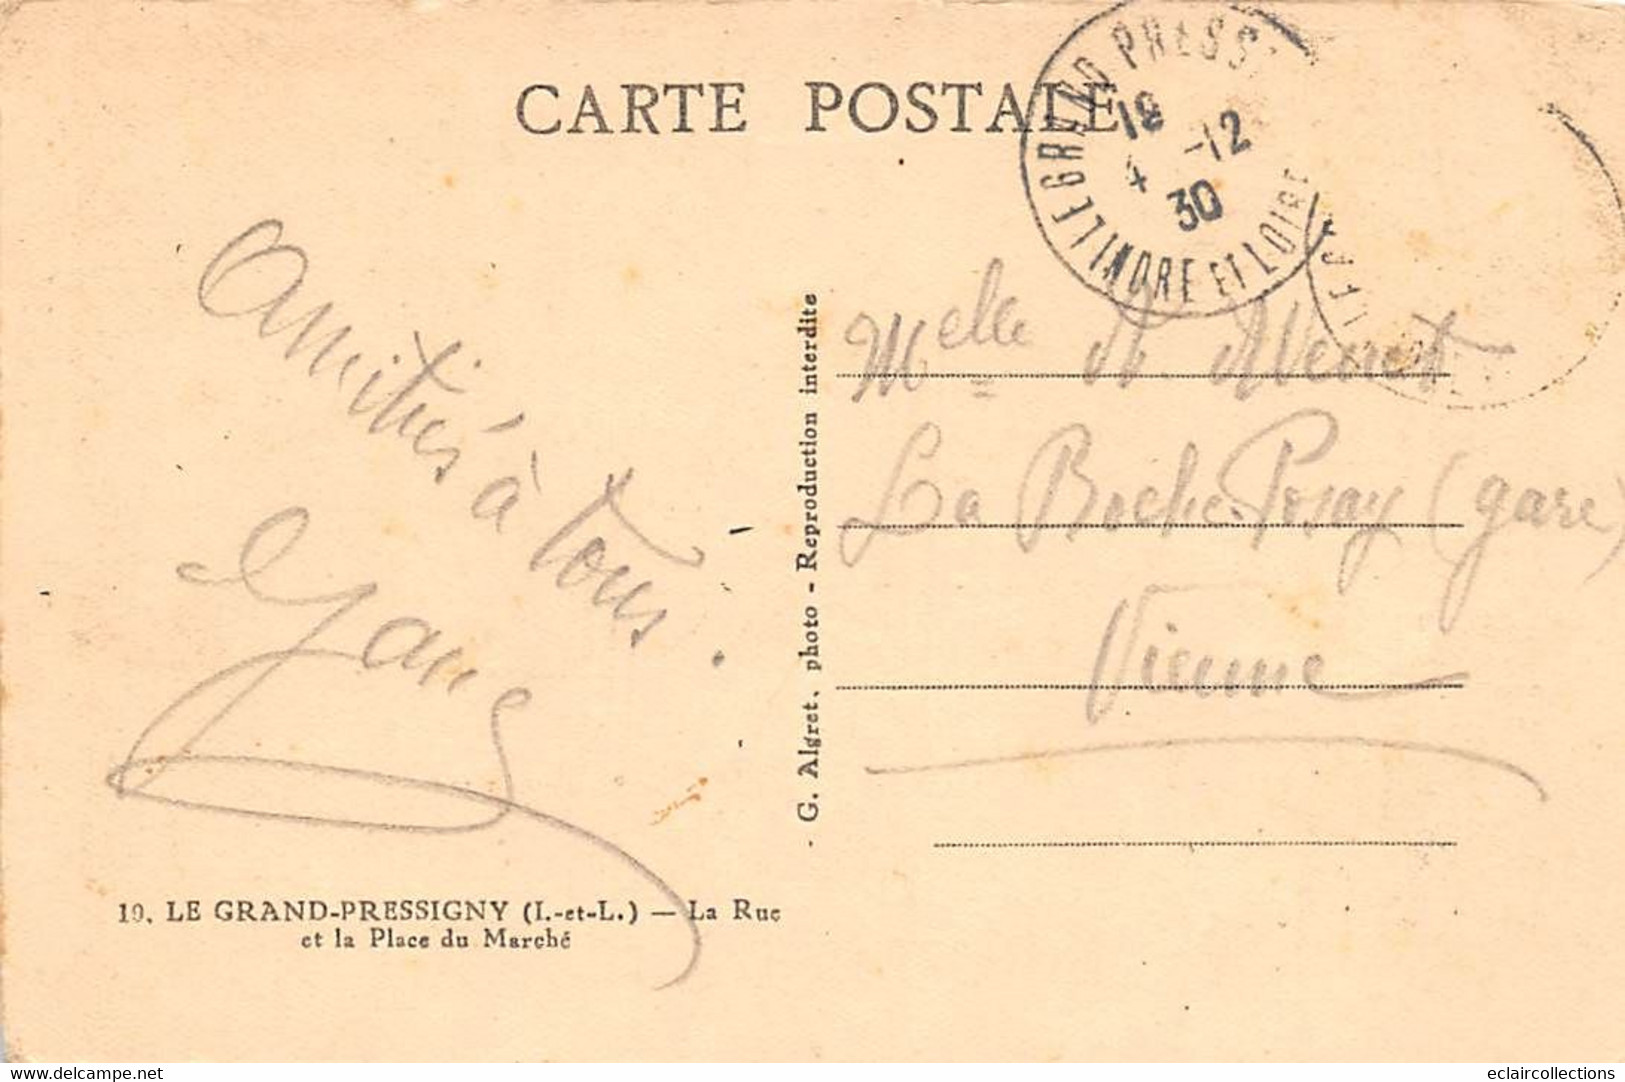 CARTE POSTALE
LE GRAND PRESSI
INDRE ET LOIRE
19
4 -12
30
Amitiés à tous.
Melle
La Roche Posay (gare)
Vienne
- G. Algret, photo - Reproduction interdite
19. LE GRAND-PRESSIGNY (I.-et-L.) — La Rue
et la Place du Marché
delcampe.net
eclaircollections